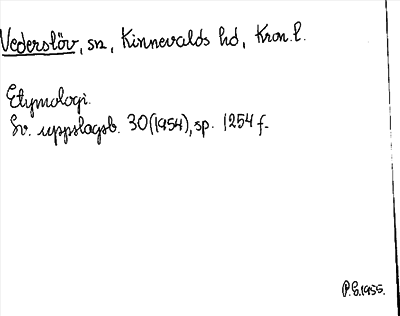 Vederslöv, sn, Kinnevalds hd, Kron. l.
Etymologi.
Sv. uppslagsb. 30(1954), sp. 1254 f.
P.G.1955.